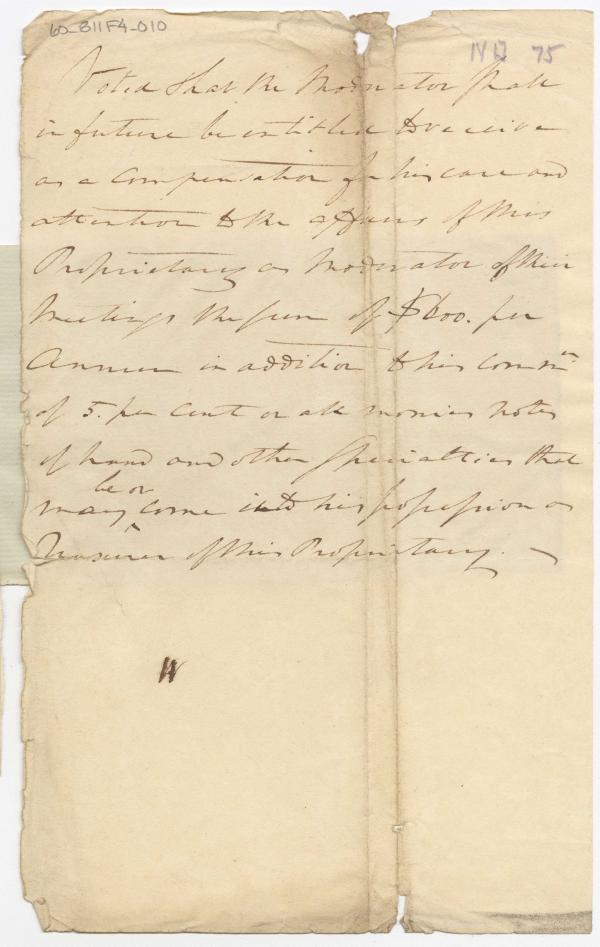 60-B11F4-010
ND 75
Voted that the Moderator shall
in future be entitled to receive
as a Compensation for his care and
attention to the affairs of this
Proprietary as Moderator of their
Meetings the sum of $600. per
Annum in addition to his commn
of 5. per cent on all monies notes
of hand and other Specialties that
be or
may come into his possession as
Treasurer of this Proprietary.